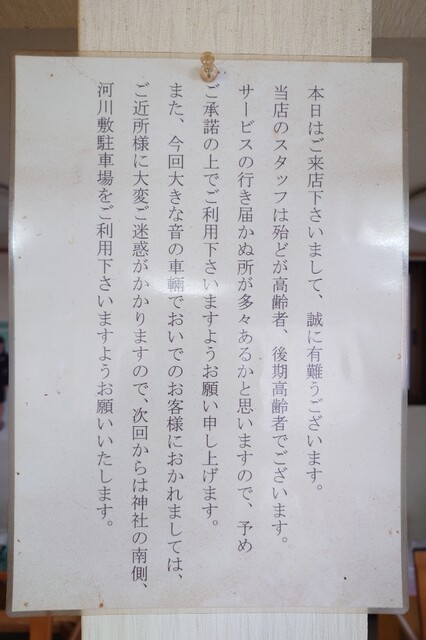 本日はご来店下さいまして、誠に有難うございます。
当店のスタッフは殆どが高齢者、後期高齢者でございます。
サービスの行き届かぬ所が多々あるかと思いますので、予め
ご承諾の上でご利用下さいますようお願い申し上げます。
また、今回大きな音の車輛でおいでのお客様におかれましては、
ご近所様に大変ご迷惑がかかりますので、次回からは神社の南側、
河川敷駐車場をご利用下さいますようお願いいたします。